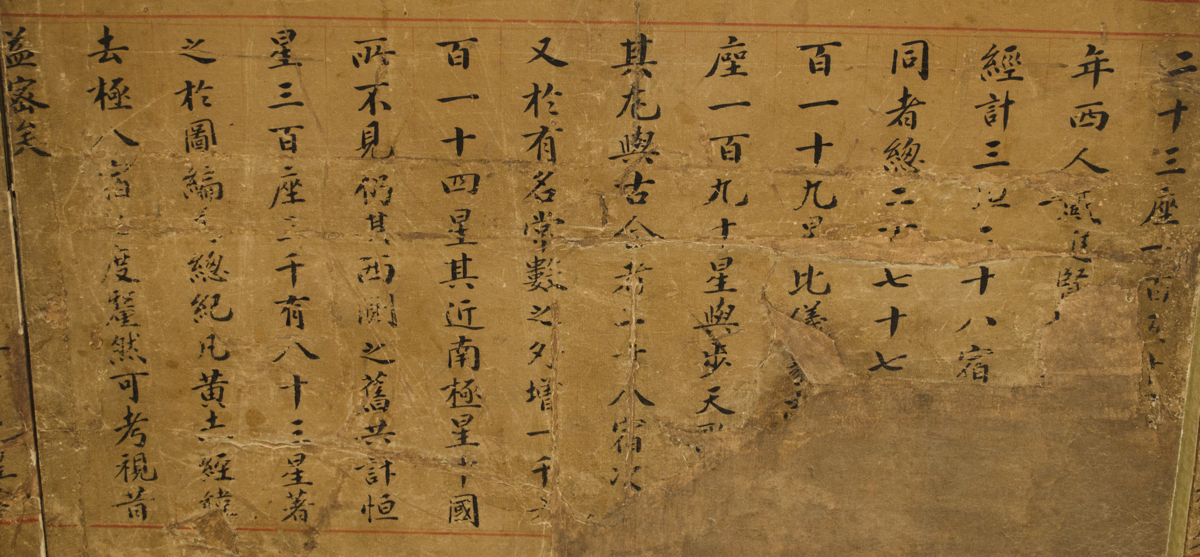 二十三座一百十
年西人戴進賢
經計三垣二十八宿
同者總二七十七
百一十九星比儀
座一百九十星與步天歌
其尤與古合者二十八宿次
又於有名常數之外增一千
百一十四星其近南極星中國
所不見仍其西測之舊共計恒
星三百座三千有八十三星著
之於圖編為總紀凡黃赤經緯
去極入宿之度釐然可考視昔
益密矣